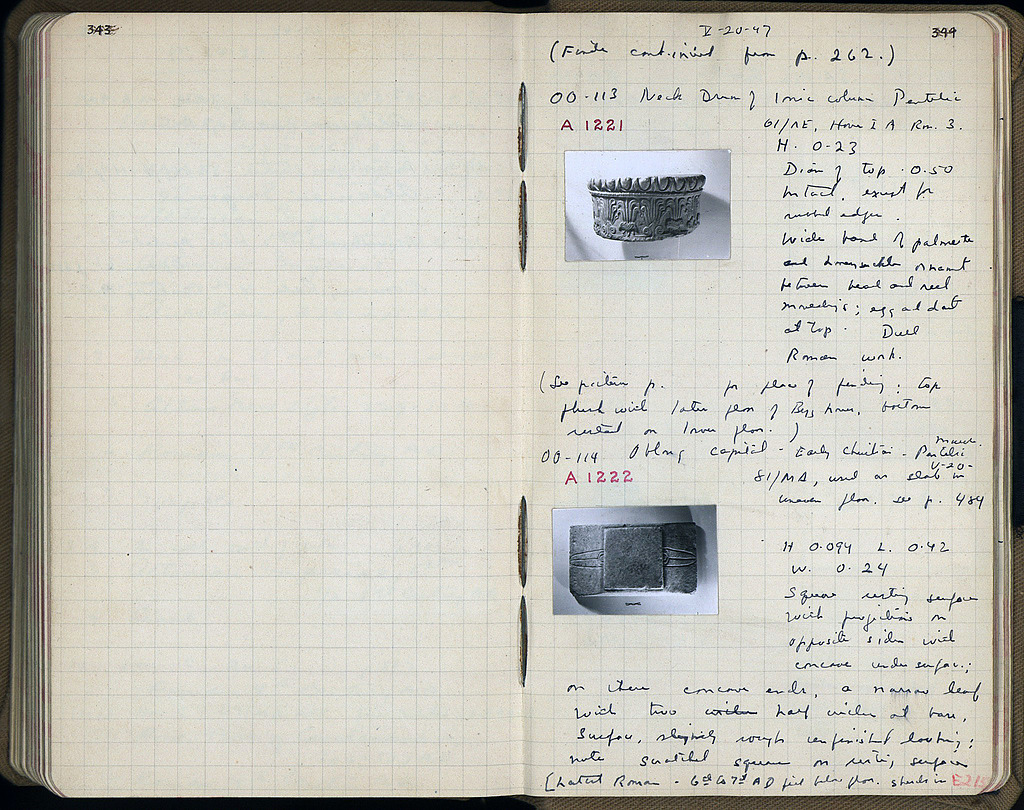 343
V-20-47
344
(Finds continued from p. 262.)
OO-113 Neck Drum of Ionic column Pentelic
A 1221
61/ΛE, House I A Rm. 3.
H. 0.23
Diam of top. 0.50
Intact, except for
rubbed edges.
Wide band of palmette
and honeysuckle ornament
between bead and reel
mouldings; egg and dart
at top. Dull
Roman work.
(See picture p. for place of finding; top
flush with later floor of Byz house, bottom
rested on lower floor.)
OO-114 Oblong capital - Early Christian - Pentelic
V-20-
A 1222
81/MA, used as slab in
uneven floor. see p. 484
H 0.094 L. 0.42
W. 0.24
Square resting surface
with projections on
opposite sides with
concave under surface;
on these concave ends, a narrow leaf
with two half at base.
Surface, slightly rough unfinished looking;
note scratched square on resting surface
[Latest Roman - 6th to 7th AD fill below floor. sherds in